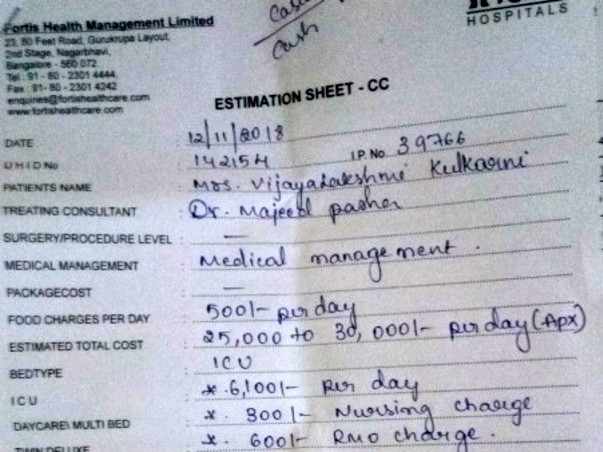 Fortis Health Management Limited
23, 80 Feet Road, Gurukrupa Layout,
2nd Stage, Nagarbhavi,
Bangalore - 560 072.
Tel : 91 - 80 - 2301 4444,
Fax : 91- 80 - 2301 4242
enquiries@fortishealthcare.com
www.fortishealthcare.com
Cash
Cash
HOSPITALS
ESTIMATION SHEET - CC
DATE : 12/11/2018
UHID No : 142154 I.P. No 39766
PATIENTS NAME : Mrs. Vijayalakshmi Kulkarni
TREATING CONSULTANT : Dr. Majeed pasha
SURGERY/PROCEDURE LEVEL : —
MEDICAL MANAGEMENT : Medical management.
PACKAGECOST : —
FOOD CHARGES PER DAY : 500/- per day
ESTIMATED TOTAL COST : 25,000 to 30,000/- per day (Apx)
BEDTYPE : ICU
ICU : *. 6,100/- Per day
DAYCARE\ MULTI BED : *. 300/- Nursing charge
TWIN DELUXE *. 600/- RMO charge.